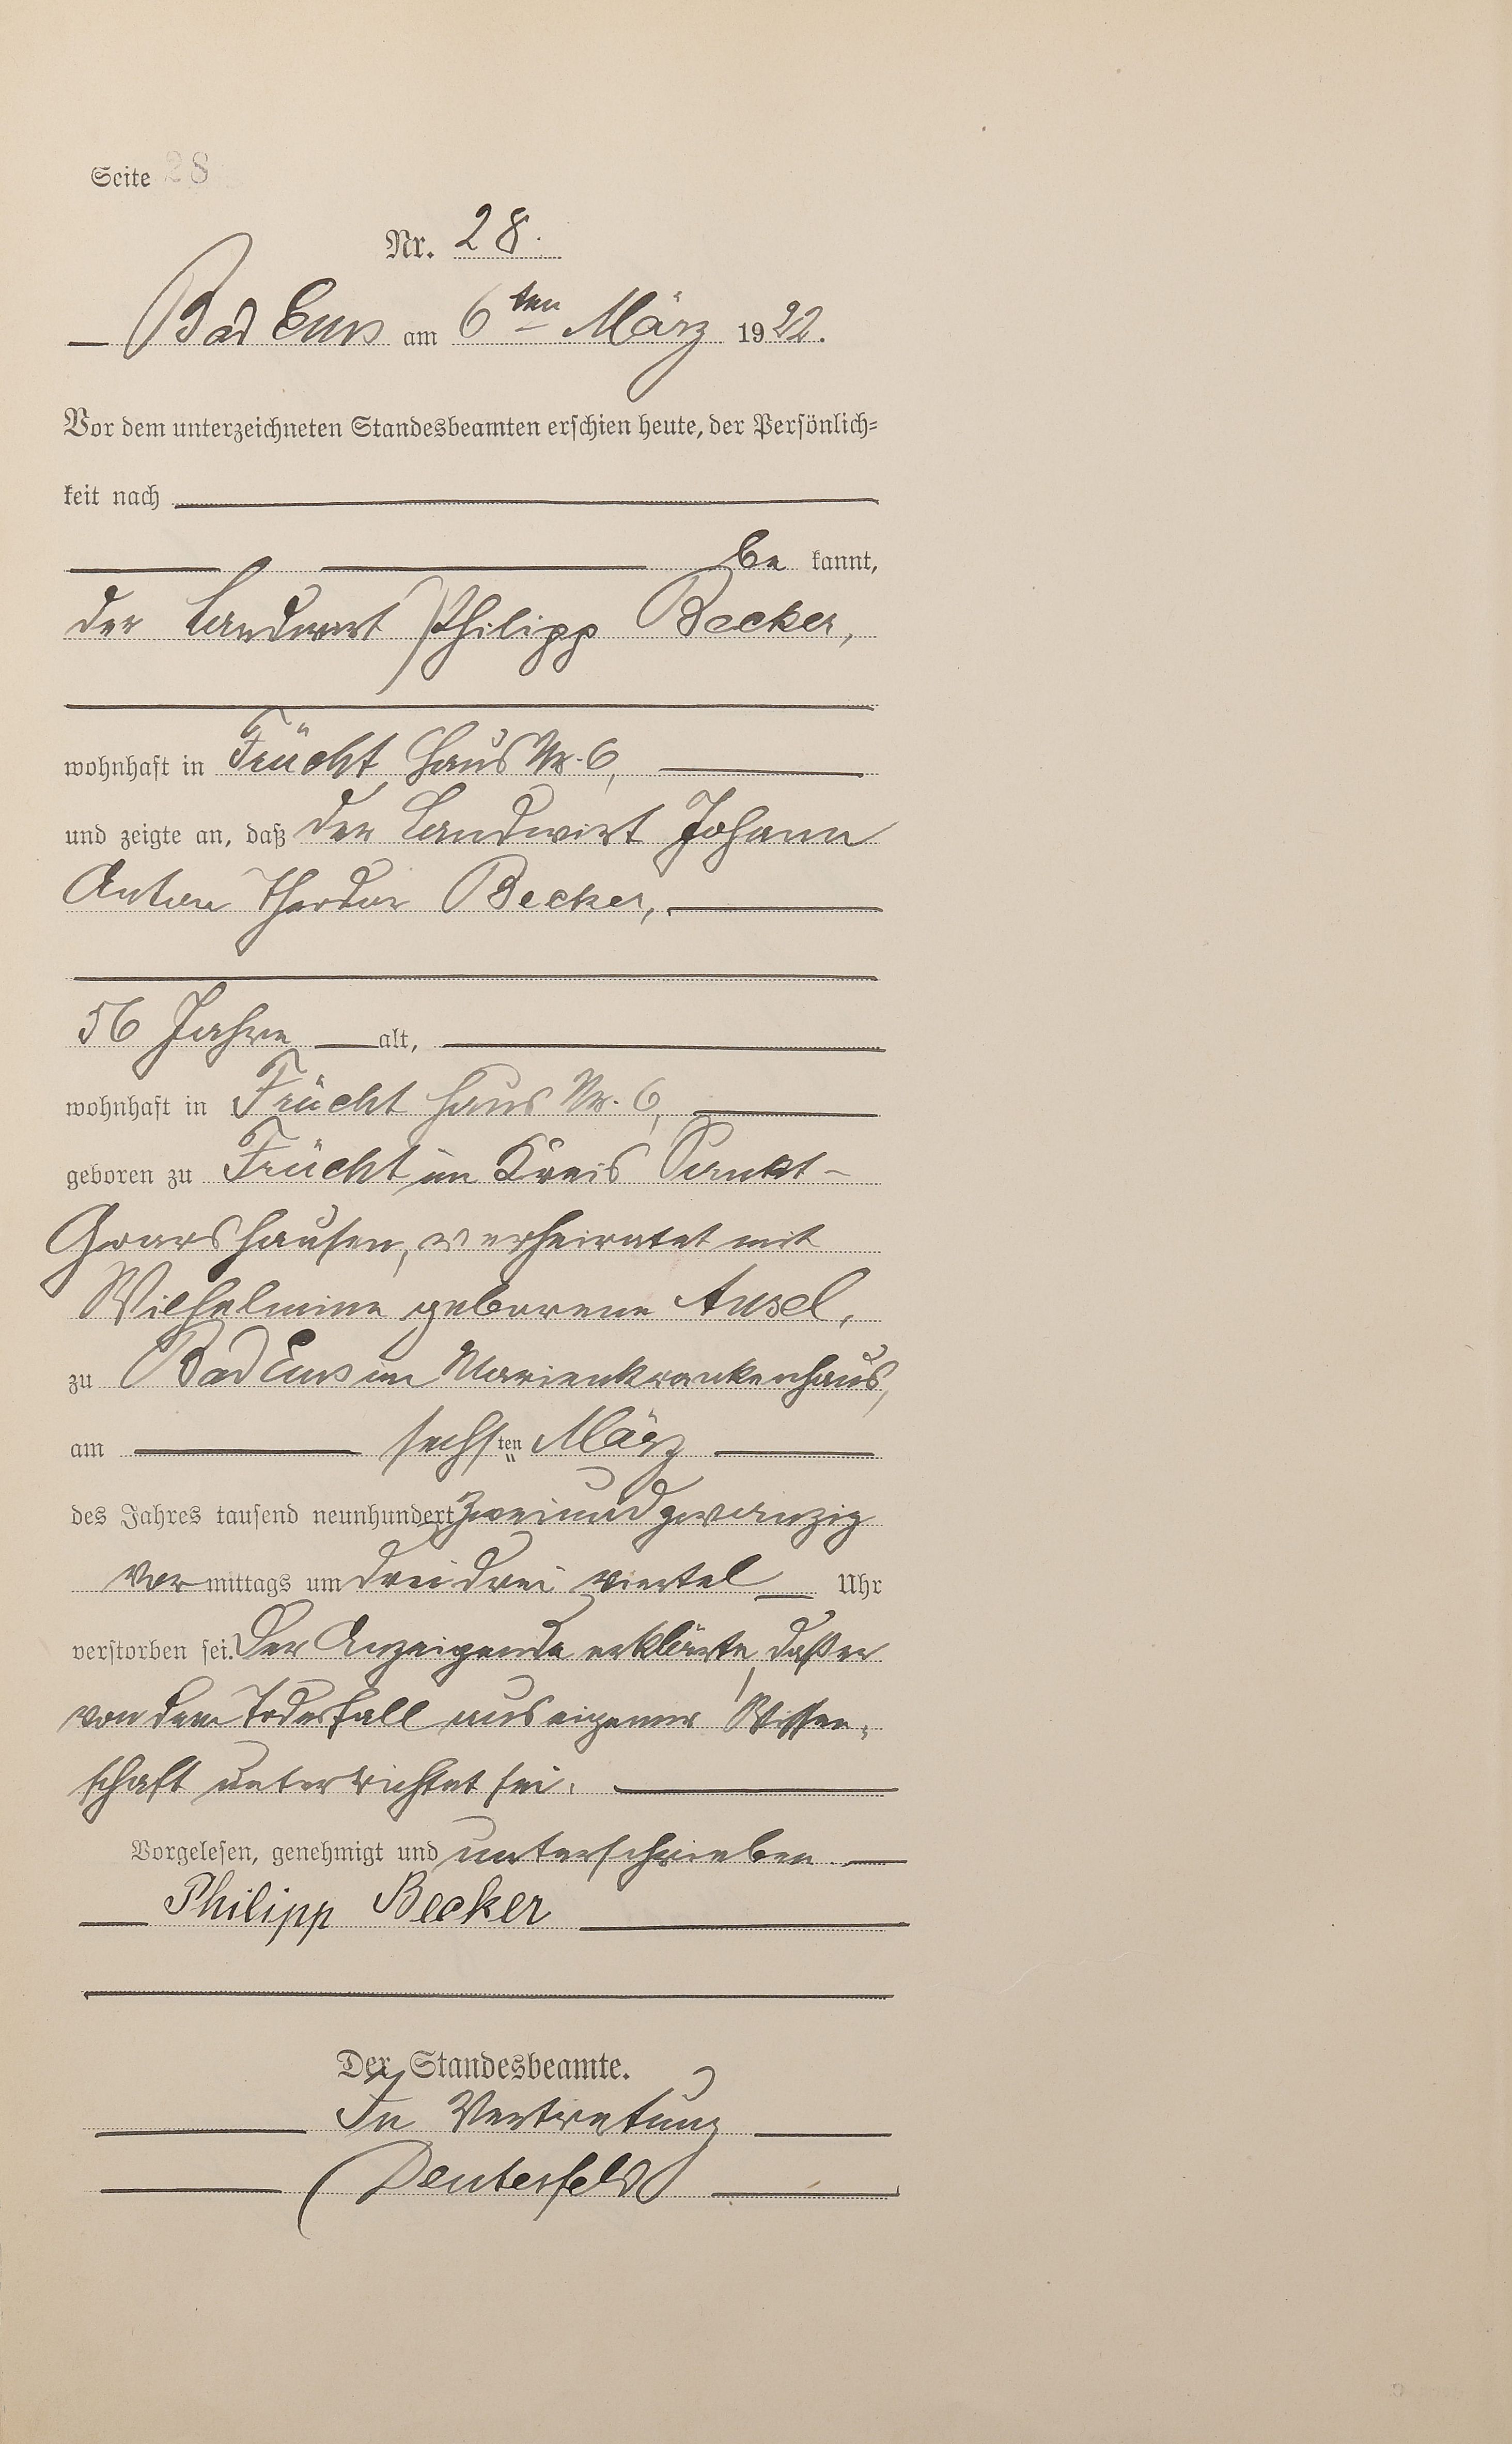 Seite 28
Nr. 28.
Bad Ems am 6ten März 1922.
Vor dem unterzeichneten Standesbeamten erschien heute, der Persönlich=
keit nach
be kannt,
der Landwirt Philipp Becker,
wohnhaft in Frücht Haus Nr. 6,
und zeigte an, daß der Landwirt Johann
Anton Theodor Becker,
56 Jahre alt,
wohnhaft in Frücht Haus Nr. 6,
geboren zu Frücht im Kreis Sankt-
Goarshausen, verheiratet mit
Wilhelmine geborene Ansel,
zu Bad Ems im Marienkrankenhaus,
am sechsten März
des Jahres tausend neunhundert zweiundzwanzig
vormittags um drei drei viertel Uhr
verstorben sei. Der Anzeigende erklärte, daß er
von dem Todesfall aus eigener Wissen-
schaft unterrichtet sei.
Vorgelesen, genehmigt und unterschrieben.
Philipp Becker
Der Standesbeamte.
In Vertretung